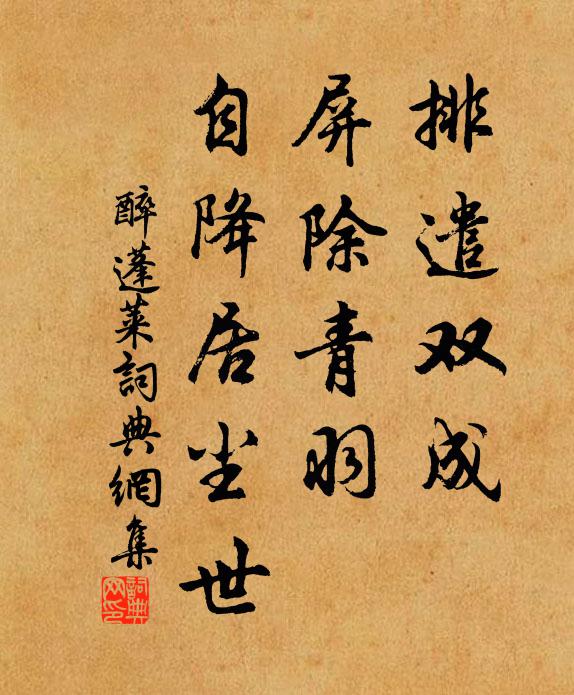 排遣双成
屏除青羽
自降居尘世
醉蓬莱詞典網集
詞典
网印